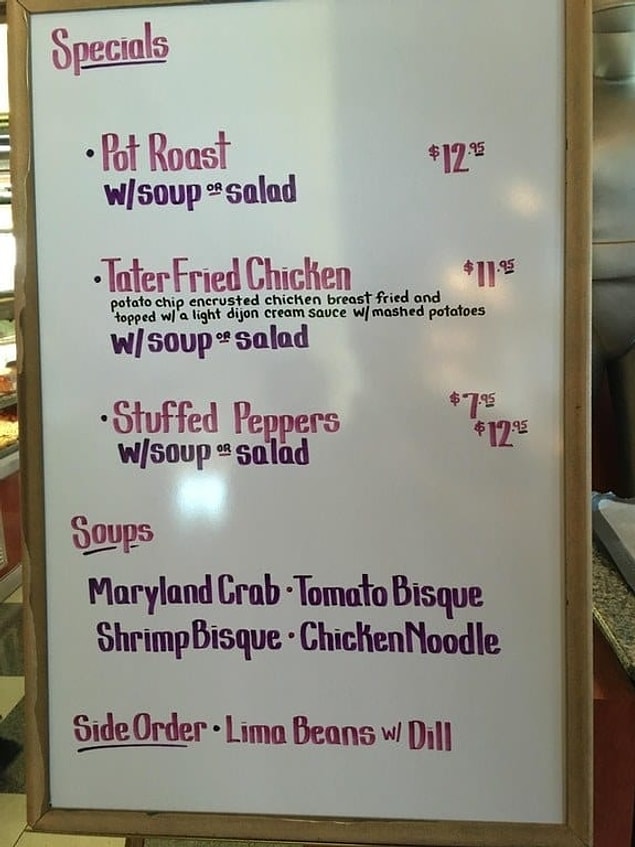 Specials
• Pot Roast $12.95
w/soup OR salad
• Tater Fried Chicken $11.95
potato chip encrusted chicken breast fried and
topped w/ a light dijon cream sauce w/ mashed potatoes
w/soup OR salad
• Stuffed Peppers $7.95
$12.95
w/soup OR salad
Soups
Maryland Crab • Tomato Bisque
Shrimp Bisque • Chicken Noodle
Side Order • Lima Beans w/ Dill